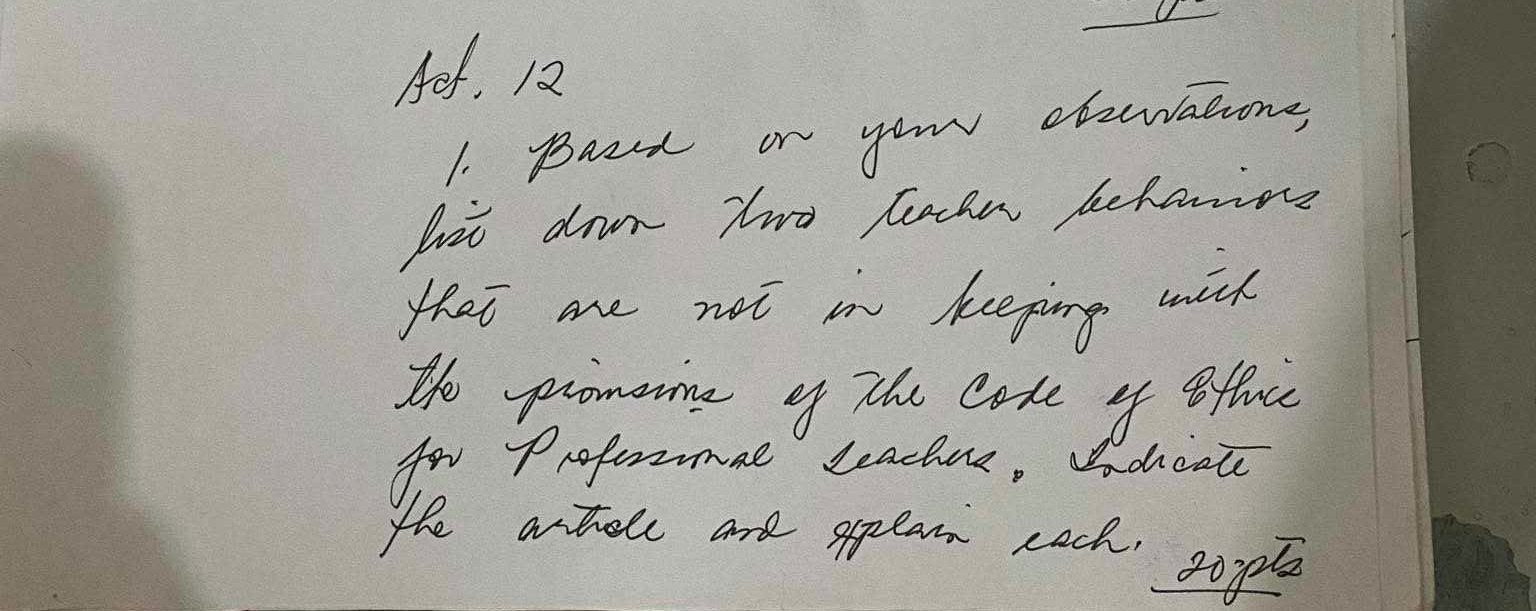 Act. 12
1. Based on your observations,
list down two teacher behaviors
that are not in keeping with
the provisions of the Code of Ethics
for Professional Teachers. Indicate
the article and explain each.
20 pts